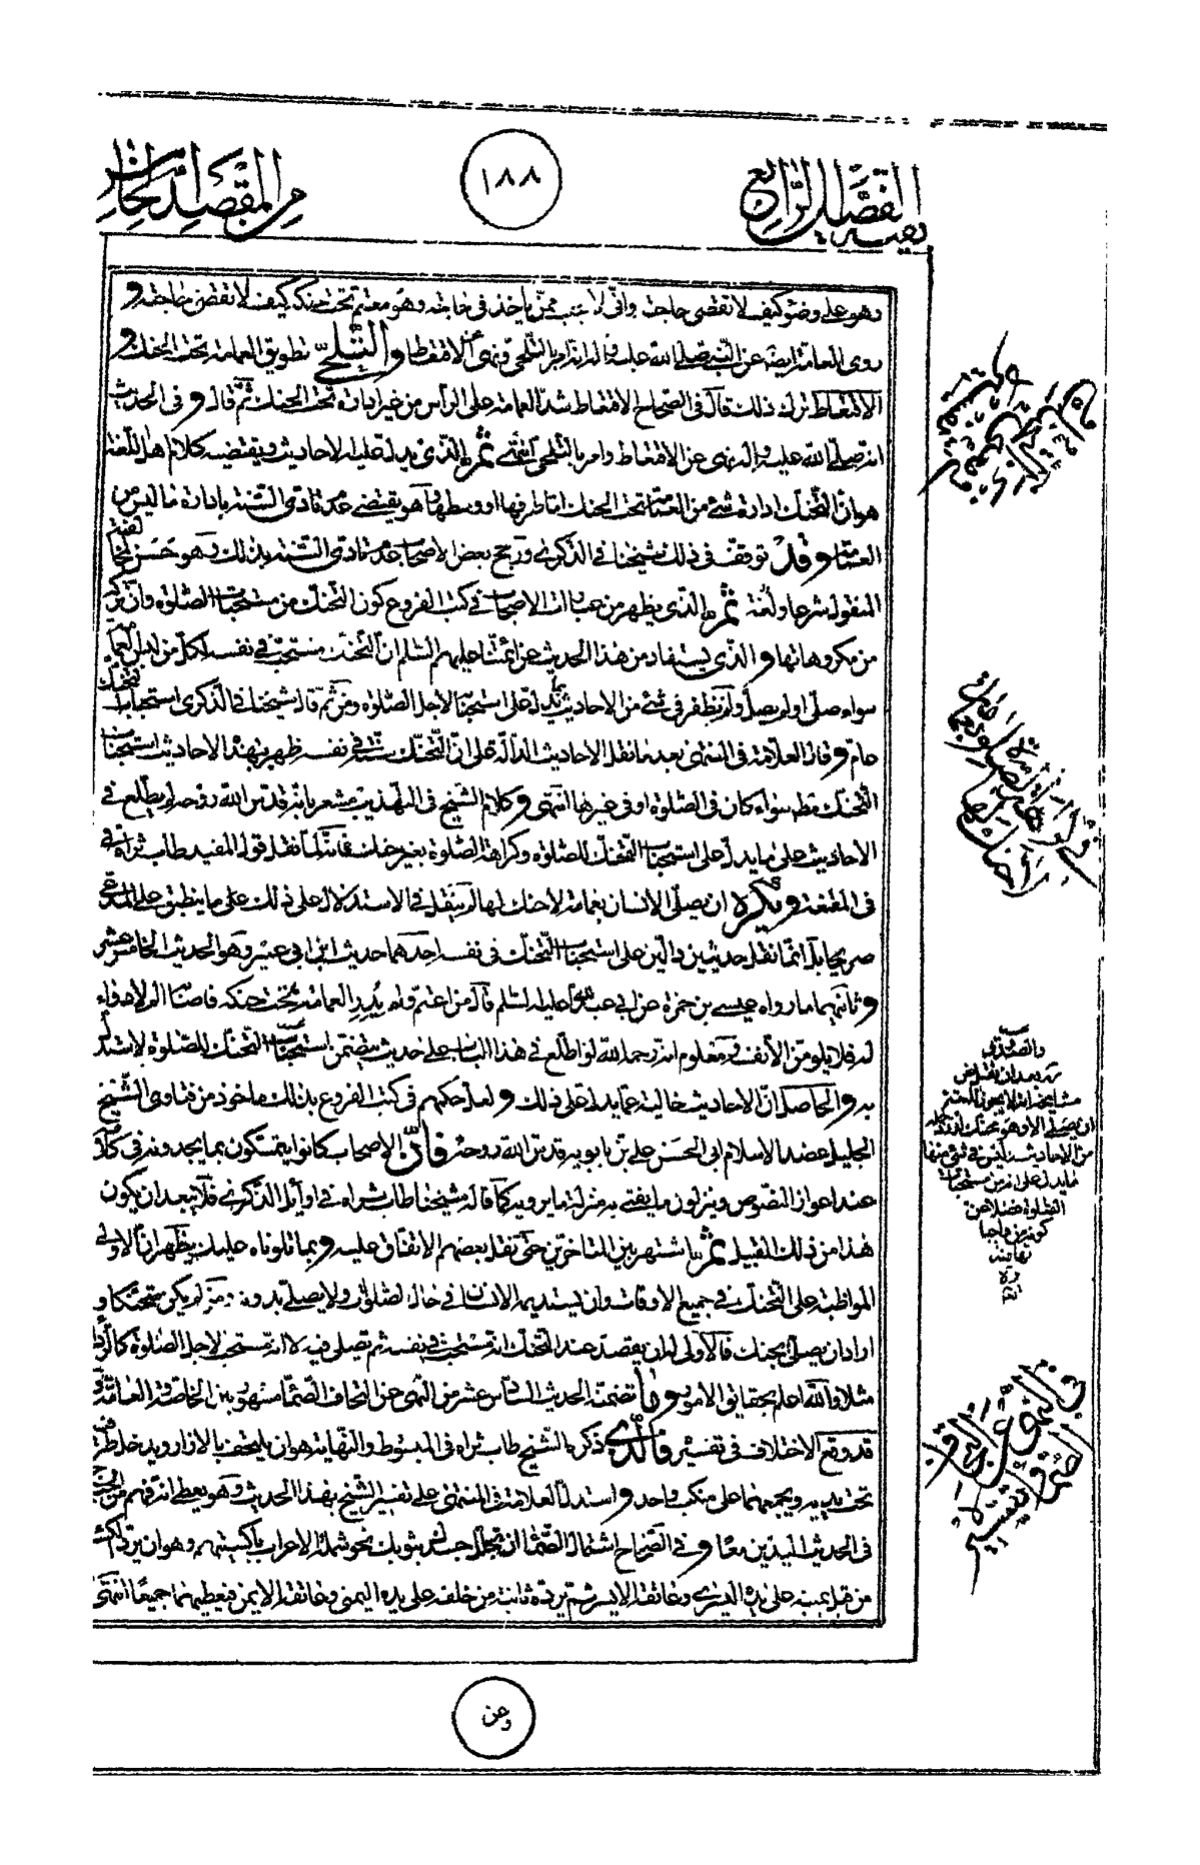 بقية الفصل الرابع
١٨٨
من المقصد الحادي
وهو على وضوء كيف لا تقضى حاجته وانى لاعجب ممن ياخذ فى حاجته وهو معتم تحت حنكه كيف لا تقضى حاجته و
روى العامة ايضا عن النبي صلى الله عليه واله انه امر بالتلحى ونهى عن الاقتعاط والتلحى تطويق العمامة تحت الحنك و
الاقتعاط ترك ذلك قال فى الصحاح الاقتعاط شد العمامة على الراس من غير ادارة تحت الحنك ثم قال وفى الحديث
انه صلى الله عليه واله نهى عن الاقتعاط وامر بالتلحى انتهى ثم الذى يدل عليه الاحاديث ويقتضيه كلام اهل اللغة
هو ان التحنك ادارة شئ من العمامة تحت الحنك اما طرفها او وسطها وهو يقتضى عدم تادى السنة بادارة ما ليس من
العمامة وقد توقف فى ذلك شيخنا في الذكرى ورجح بعض الاصحاب عدم تادى السنة بذلك وهو حسن لمخالفته
المنقول شرعا ولغة ثم الذى يظهر من عبارات الاصحاب في كتب الفروع كون التحنك من مستحبات الصلوة وان تركه
من مكروهاتها والذى يستفاد من هذا الحديث عن ائمتنا عليهم السلم ان التحنك مستحب في نفسه لكل من لبس العمامة
سواء صلى او لم يصل ولم نظفر فى شئ من الاحاديث بما يدل على استحبابه لاجل الصلوة ومن ثم قال شيخنا في الذكرى استحباب التحنك
عام وقال العلامة فى المنتهى بعد ما نقل الاحاديث الدالة على ان التحنك سنة في نفسه ظهر بهذه الاحاديث استحباب
التحنك مطلقا سواء كان فى الصلوة او فى غيرها انتهى وكلام الشيخ فى التهذيب مشعر بانه قدس الله روحه لم يطلع في
الاحاديث على ما يدل على استحباب التحنك للصلوة وكراهة الصلوة بغير حنك فانه لما نقل قول المفيد طاب ثراه
فى المقنعة ويكره ان يصلى الانسان بعمامة لا حنك لها لم ينقل في الاستدلال على ذلك على ما ينطبق على المدعى
صريحا بل انما نقل حديثين دالين على استحباب التحنك فى نفسه احدهما حديث ابن ابى عمير وهو الحديث الخامس عشر
وثانيهما ما رواه عيسى بن حمزة عن ابى عبدالله عليه السلم قال من اعتم فلم يدر العمامة تحت حنكه فاصابه الم لا دواء
له فلا يلومن الا نفسه ومعلوم انه رحمه الله لو اطلع في هذا الباب على حديث يتضمن استحباب التحنك للصلوة لاستدل
به والحاصل ان الاحاديث خالية عما يدل على ذلك ولعل حكمهم فى كتب الفروع بذلك ماخوذ من فتاوى الشيخ
الجليل عضد الاسلام ابى الحسن على بن بابويه قدس الله روحه فان الاصحاب كانوا يتمسكون بما يجدونه في كلامه
عند اعواز النصوص وينزلون ما يفتى به منزلة ما يرويه كما قاله شيخنا طاب ثراه فى اوايل الذكرى فلا يبعد ان يكون
هذا من ذلك القبيل ثم اشتهر بين المتاخرين حتى نقل بعضهم الاتفاق عليه وبما تلوناه عليك يظهر ان الاولى
المواظبة على التحنك في جميع الاوقات وان يستديمه الانسان في حال الصلوة ولا يصلى بدونه ومن لم يكن متحنكا و
اراد ان يصلى بحنك فالاولى له ان يقصد عند التحنك انه مستحب في نفسه ثم يصلى فيه لا انه مستحب لاجل الصلوة كالرداء
مثلا والله اعلم بحقايق الامور وما تضمنه الحديث السادس عشر من النهى عن التحاف الصماء مشهور بين الخاصة والعامة و
قد وقع الاختلاف فى تفسيره فالذى ذكره الشيخ طاب ثراه فى المبسوط والنهاية هو ان يلتحف بالازار ويدخل طرفيه
تحت يديه ويجمعهما على منكب واحد واستدل العلامة فى المنتهى على تفسير الشيخ بهذا الحديث وهو يعطى انه فهم من الجناح
فى الحديث اليدين معا وفي الصحاح اشتمال الصماء ان تجلل جسدك بثوبك نحو شملة الاعراب باكسيتهم وهو ان يرد الكساء
من قبل يمينه على يده اليسرى وعاتقه الايسر ثم يرده ثانية من خلفه على يده اليمنى وعاتقه الايمن فيغطيهما جميعا انتهى
والصدوق
مشايخنا انه لا يجوز للمعتم
ان يصلى الا وهو متحنك
من الاحاديث وليس فى شئ منها
ما يدل على انه من مستحبات
الصلوة فضلا عن
كونه واجبا
فيها منه
وعن